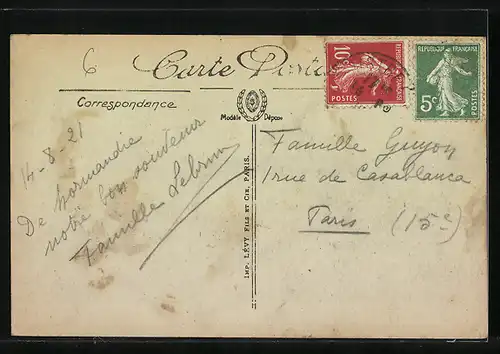 6
Carte Postale
Correspondance
Modèle Déposé
RÉPUBLIQUE FRANÇAISE
10c
POSTES
RÉPUBLIQUE FRANÇAISE
5c
POSTES
14-8-21
De Normandie
notre bon souvenir
Famille Lebrun
IMP. LÉVY FILS ET CIE, PARIS.
Famille Guyon
1 rue de Casablanca
Paris (15e)